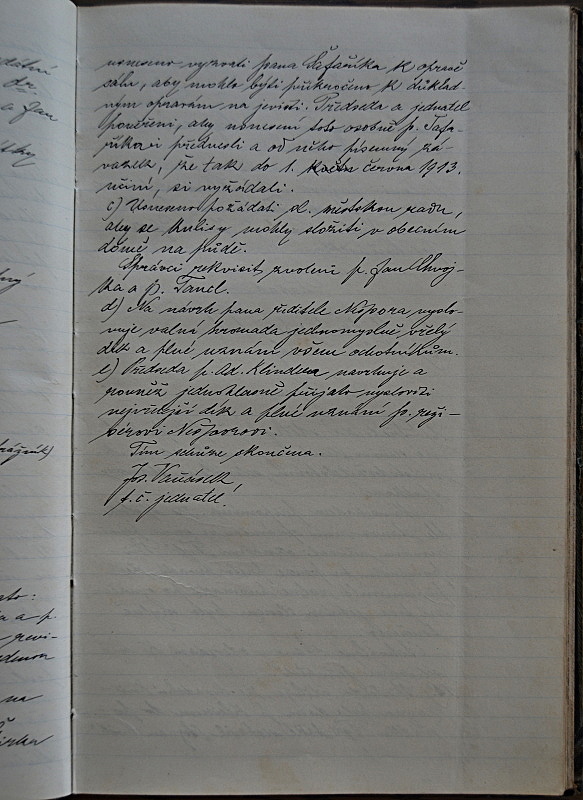 dr.
a Jan
usneseno vyzvati pana Šafaříka k opravě
sálu, aby mohlo býti přikročeno k důklad-
ným opravám na jevišti. Předseda a jednatel
pověřeni, aby usnesení toto osobně p. Šafa-
říkovi přednesli a od něho písemný zá-
vazek, že tak do 1. června 1913.
učiní, si vyžádali.
c) Usneseno požádati sl. městskou radu,
aby se kulisy mohly složiti v obecním
domě na půdě.
Správci rekvisit zvoleni p. Jan Chvoj-
ka a p. Tancl.
d) Na návrh pana řiditele Nešpora vyslo-
vuje valná hromada jednomyslně vřelý
dík a plné uznání všem ochotníkům.
e) Předseda p. Ad. Klindera navrhuje a
rovněž jednohlasně přijato vysloviti
nejvřelejší dík a plné uznání p. reži-
sérovi Nešporovi.
Tím schůze skončena.
Jos. Vaňásek,
t. č. jednatel.
a p.
revi-
na